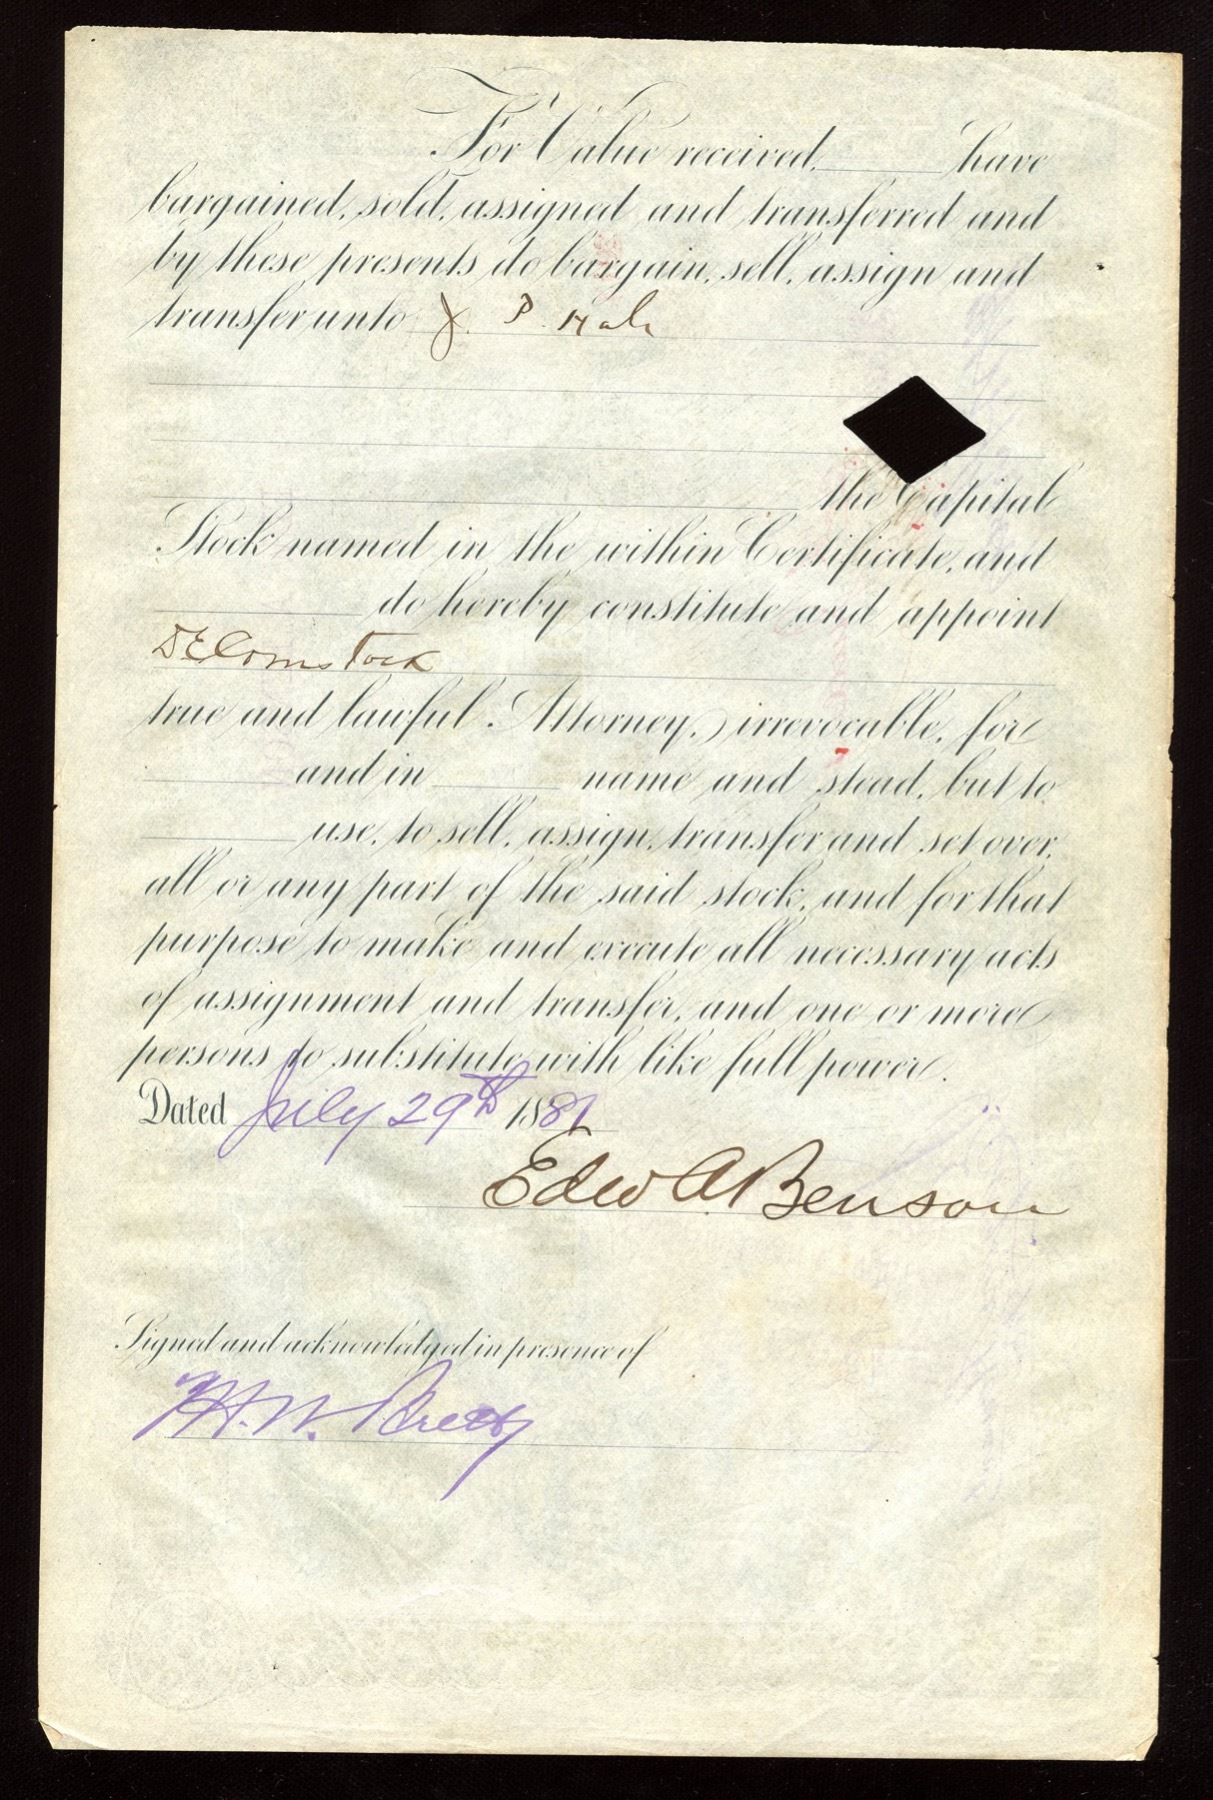 For Value received, have
bargained, sold, assigned and transferred and
by these presents do bargain, sell, assign and
transfer unto J. P. Hale
the Capital
Stock named in the within Certificate, and
do hereby constitute and appoint
D E Comstock
true and lawful Attorney, irrevocable, for
and in name and stead, but to
use, to sell, assign, transfer and set over,
all or any part of the said stock, and for that
purpose to make and execute all necessary acts
of assignment and transfer, and one or more
persons to substitute with like full power.
Dated July 29th 1881
Edw A. Benson
Signed and acknowledged in presence of
H. W.